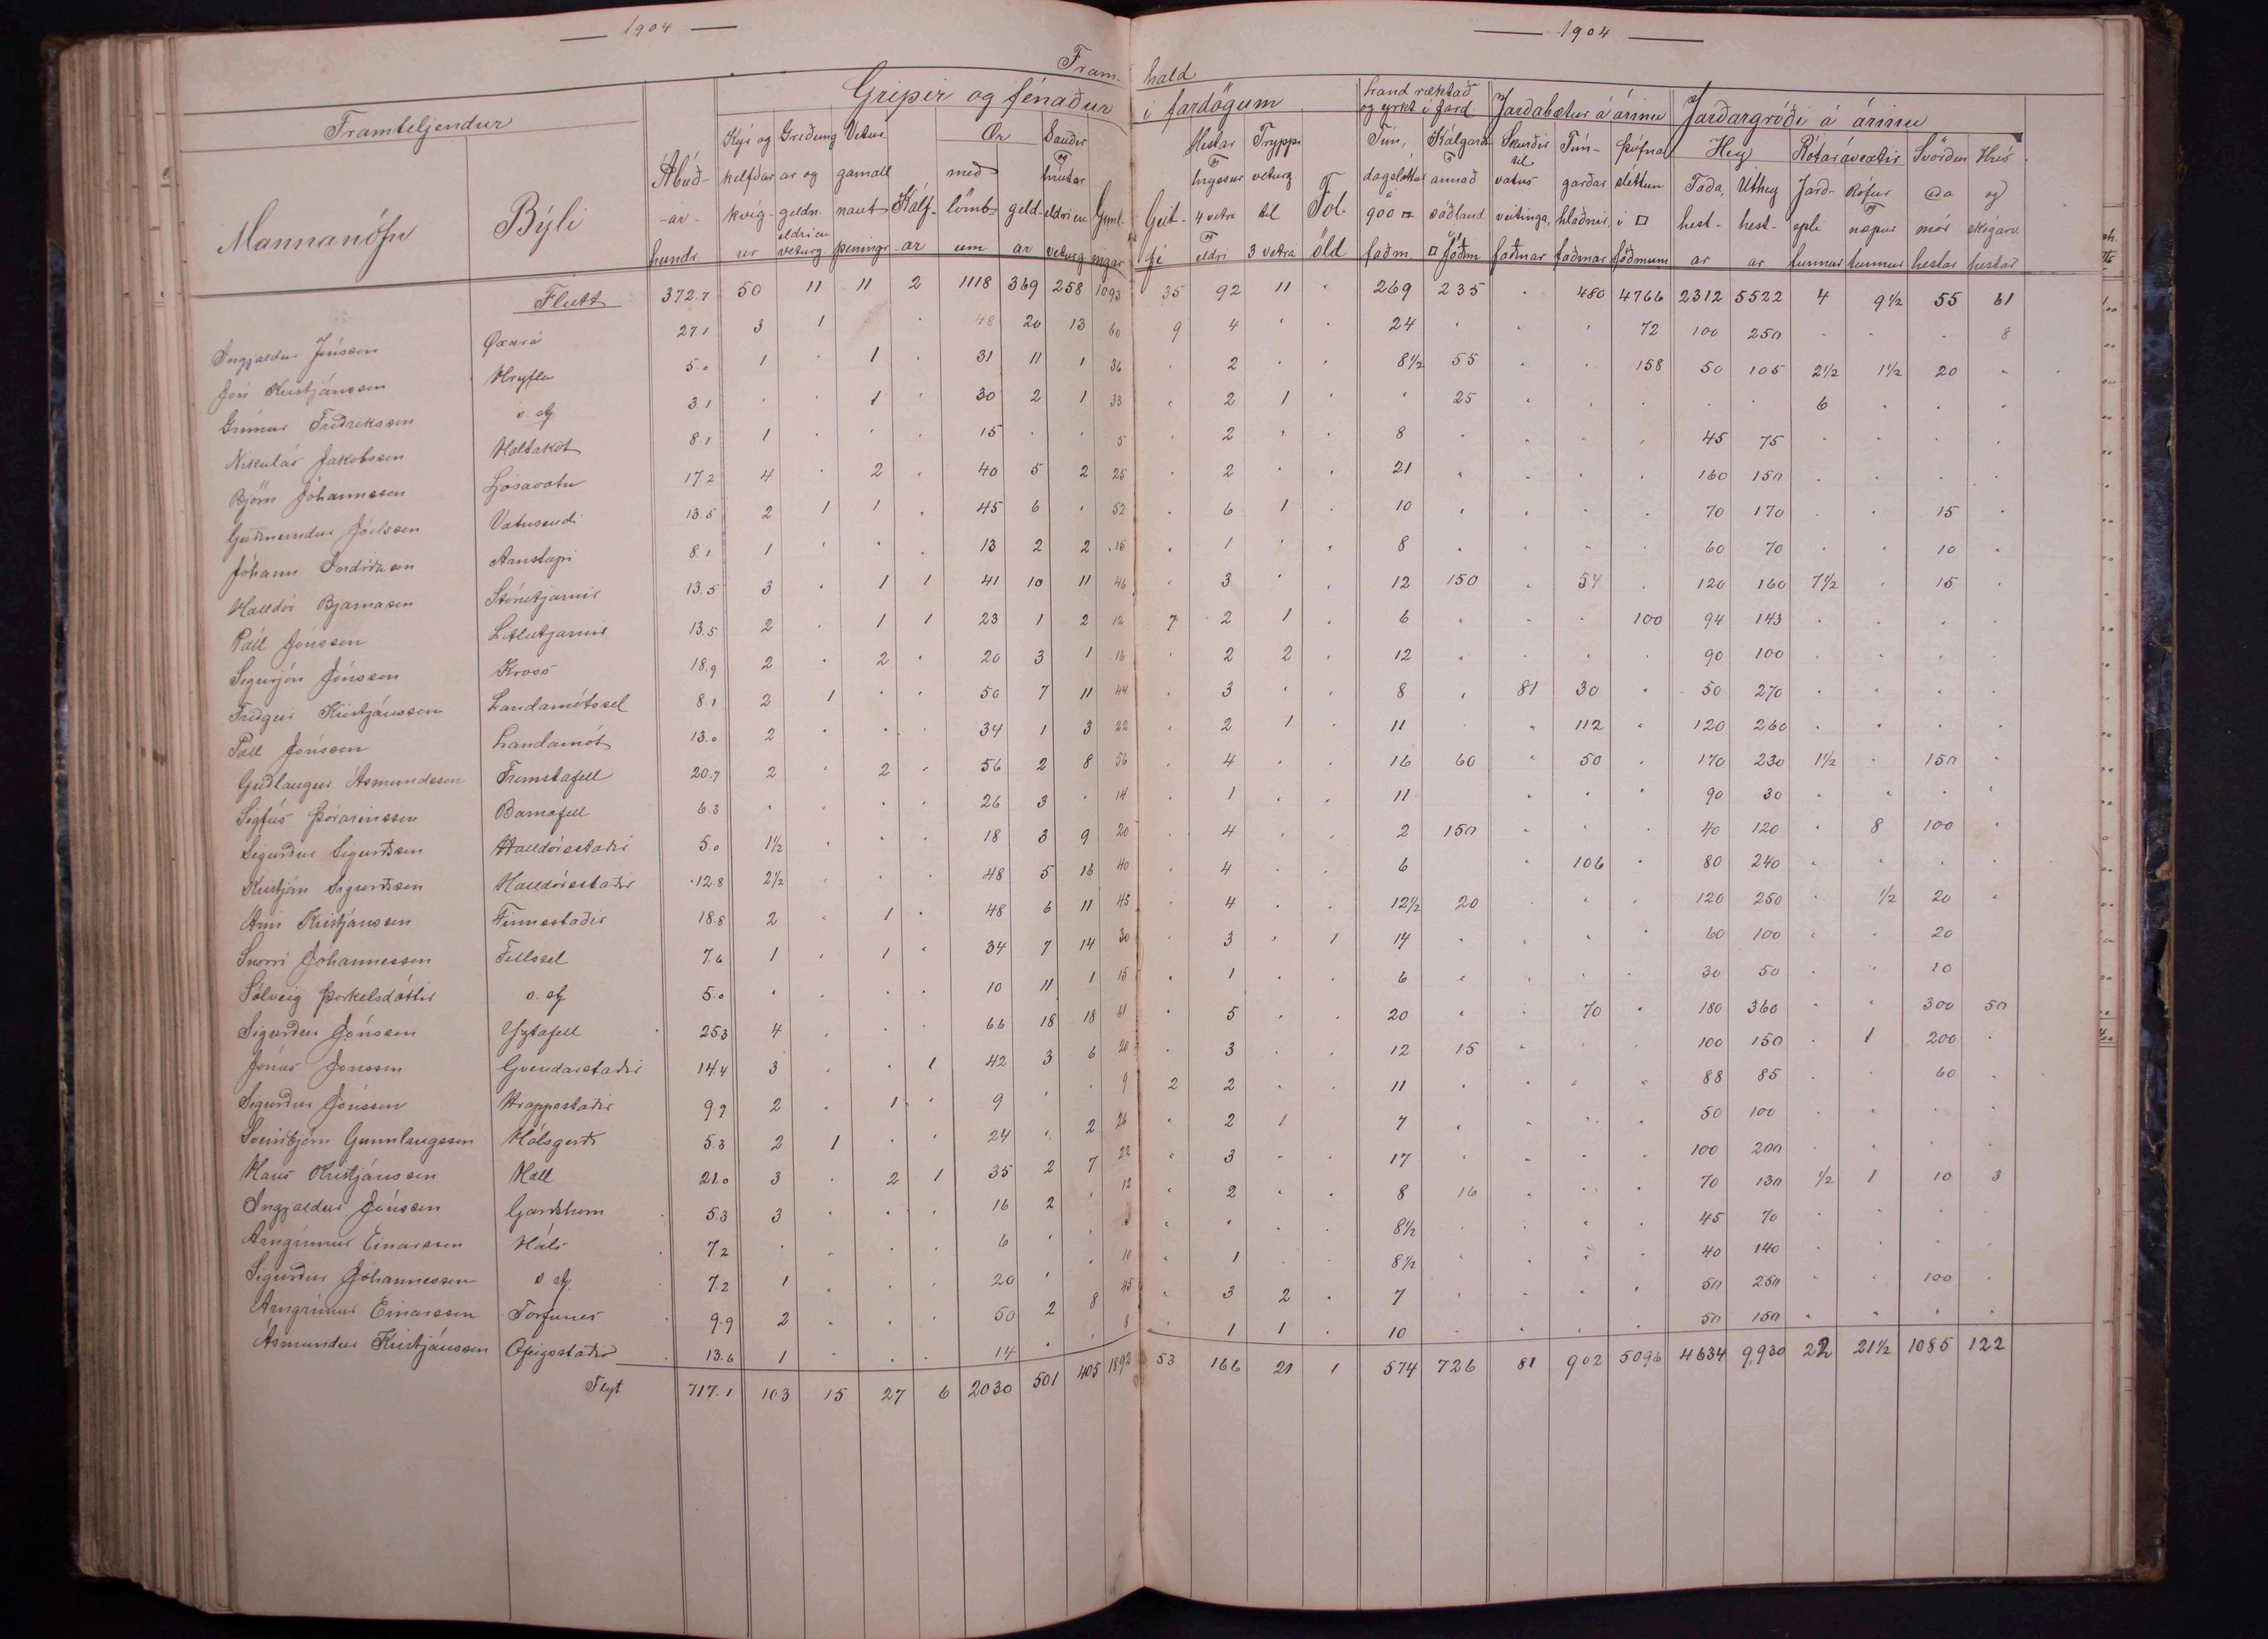 — 1904 —
— 1904 —
Fram- hald
Framteljendur
Gripir og fénaður í fardögum
Land ræktað og yrkt í fard.
Jarðabætur á árinu
Jarðargróði á árinu
Mannanöfn | Býli | Ábúð-ar-hundr | Kýr og kelfdar kvíg-ur | Griðung ar og geldn. eldri en veturg | Vetur gamall naut peningr | Kálf-ar | Ær með lömb-um | geld-ar | Sauðir og hrútar eldri en veturg | Geml-ingar | Geit-fé | Hestar og hryssur 4 vetra og eldri | Tryppi veturg til 3 vetra | Fol-öld | Tún, dagsláttur á 900 □ faðm. | Kálgarð og annað sáðland □ föðm | Skurðir til vatns veitinga, faðmar | Tún-garðar hlaðnir, faðmar | Þúfna sléttun í □ föðmum | Hey Taða, hest-ar | Úthey hest-ar | Rótarávextir Jarð-epli tunnur | Rófur og næpur tunnur | Svörður mór hestar | Hrís og skógarv. hestar
Flutt 372.7 50 11 11 2 1118 369 258 1093 35 92 11 . 269 235 . 480 4766 2312 5522 4 9½ 55 61
Ingjaldur Jónsson Öxará 27.1 3 1 . 48 20 13 60 9 4 . . 24 . . . 72 100 250 . . . 8
Jón Kristjánsson Hryflu 5.0 1 . 1 . 31 11 1 36 . 2 . . 8½ 55 . . 158 50 105 2½ 1½ 20 .
Grímur Friðriksson s. st. 3.1 . . 1 . 30 2 1 33 . 2 1 . . 25 . . . . . 6 . . .
Nikulás Jakobsson Holtakot 8.1 1 . . . 15 . . 5 . 2 . . 8 . . . . 45 75 . . . .
Björn Jóhannsson Ljósavatn 17.2 4 . 2 . 40 5 2 25 . 2 . . 21 . . . . 160 150 . . . .
Guðmundur Jóelsson Vatnsendi 13.5 2 1 1 . 45 6 . 52 . 6 1 . 10 . . . . 70 170 . . 15 .
Jóhann Indriðason Arnstapi 8.1 1 . . . 13 2 2 15 . 1 . . 8 . . . . 60 70 . . 10 .
Halldór Bjarnason Stórutjarnir 13.5 3 . 1 1 41 10 11 46 . 3 . . 12 150 . 54 . 120 160 7½ . 15 .
Páll Jónsson Litlutjarnir 13.5 2 . 1 1 23 1 2 12 7 2 1 . 6 . . . 100 94 143 . . . .
Sigurjón Jónsson Kross 18.9 2 . 2 . 20 3 1 16 . 2 2 . 12 . . . . 90 100 . . . .
Friðgeir Kristjánsson Landamótssel 8.1 2 1 . . 50 7 11 44 . 3 . . 8 . 81 30 . 50 270 . . . .
Páll Jónsson Landamót 13.0 2 . . . 34 1 3 22 . 2 1 . 11 . . 112 . 120 260 . . . .
Guðlaugur Ásmundsson Fremstafell 20.7 2 . 2 . 56 2 8 56 . 4 . . 16 60 . 50 . 170 230 1½ . 150 .
Sigfús Þórarinsson Barnafell 6.3 . . . . 26 3 . 14 . 1 . . 11 . . . 90 30 . . . .
Sigurður Sigurðsson Halldórsstaðir 5.0 1½ . . . 18 3 9 20 . 4 . . 2 150 . . . 40 120 . 8 100 .
Kristján Sigurðsson Halldórsstaðir 12.8 2½ . . . 48 5 16 40 . 4 . . 6 . 106 . 80 240 . . . .
Árni Kristjánsson Finnsstaðir 18.8 2 . 1 . 48 6 11 45 . 4 . . 12½ 20 . . . 120 250 . ½ 20 .
Snorri Jóhannesson Fellssel 7.6 1 . 1 . 34 7 14 30 . 3 . 1 14 . . . . 60 100 . . 20
Sólveig Þorkelsdóttir s. st. 5.0 . . . . 10 11 1 15 . 1 . . 6 . . . . 30 50 . . 10
Sigurður Jónsson Yztafell 25.3 4 . . . 66 18 18 61 . 5 . . 20 . . 70 . 180 360 . . 300 50
Jónas Jónsson Gvendarstaðir 14.4 3 . . 1 42 3 6 20 . 3 . . 12 15 . . . 100 150 . 1 200 .
Sigurður Jónsson Hrappsstaðir 9.9 2 . 1 . 9 . . 9 2 2 . . 11 . . . . 88 85 . . 60 .
Sveinbjörn Gunnlaugsson Hólsgerði 5.3 2 1 . . 24 . 2 26 . 2 1 . 7 . . . . 50 100 . . . .
Hans Kristjánsson Hall 21.0 3 . 2 1 35 2 7 22 . 3 . . 17 . . . . 100 200 . . . .
Ingjaldur Jónsson Garðshorn 5.3 3 . . . 16 2 . 12 . 2 . . 8 16 . . . 70 130 ½ 1 10 3
Arngrímur Einarsson Háls 7.2 . . . . 6 . . . . . . 8½ . . . . 45 70 . . . .
Sigurður Jóhannesson s. st. 7.2 1 . . . 20 . . 10 . 1 . . 8½ . . . . 40 140 . . . .
Arngrímur Einarsson Torfunes 9.9 2 . . . 50 2 8 45 . 3 2 . 7 . . . . 50 250 . . 100 .
Ásmundur Kristjánsson Ófeigsstaðir 13.6 1 . . . 14 . . 8 . 1 1 . 10 . . . . 50 150 . . . .
Flyt 717.1 103 15 27 6 2030 501 405 1892 53 166 21 1 574 726 81 902 5096 4634 9,930 22 21½ 1085 122